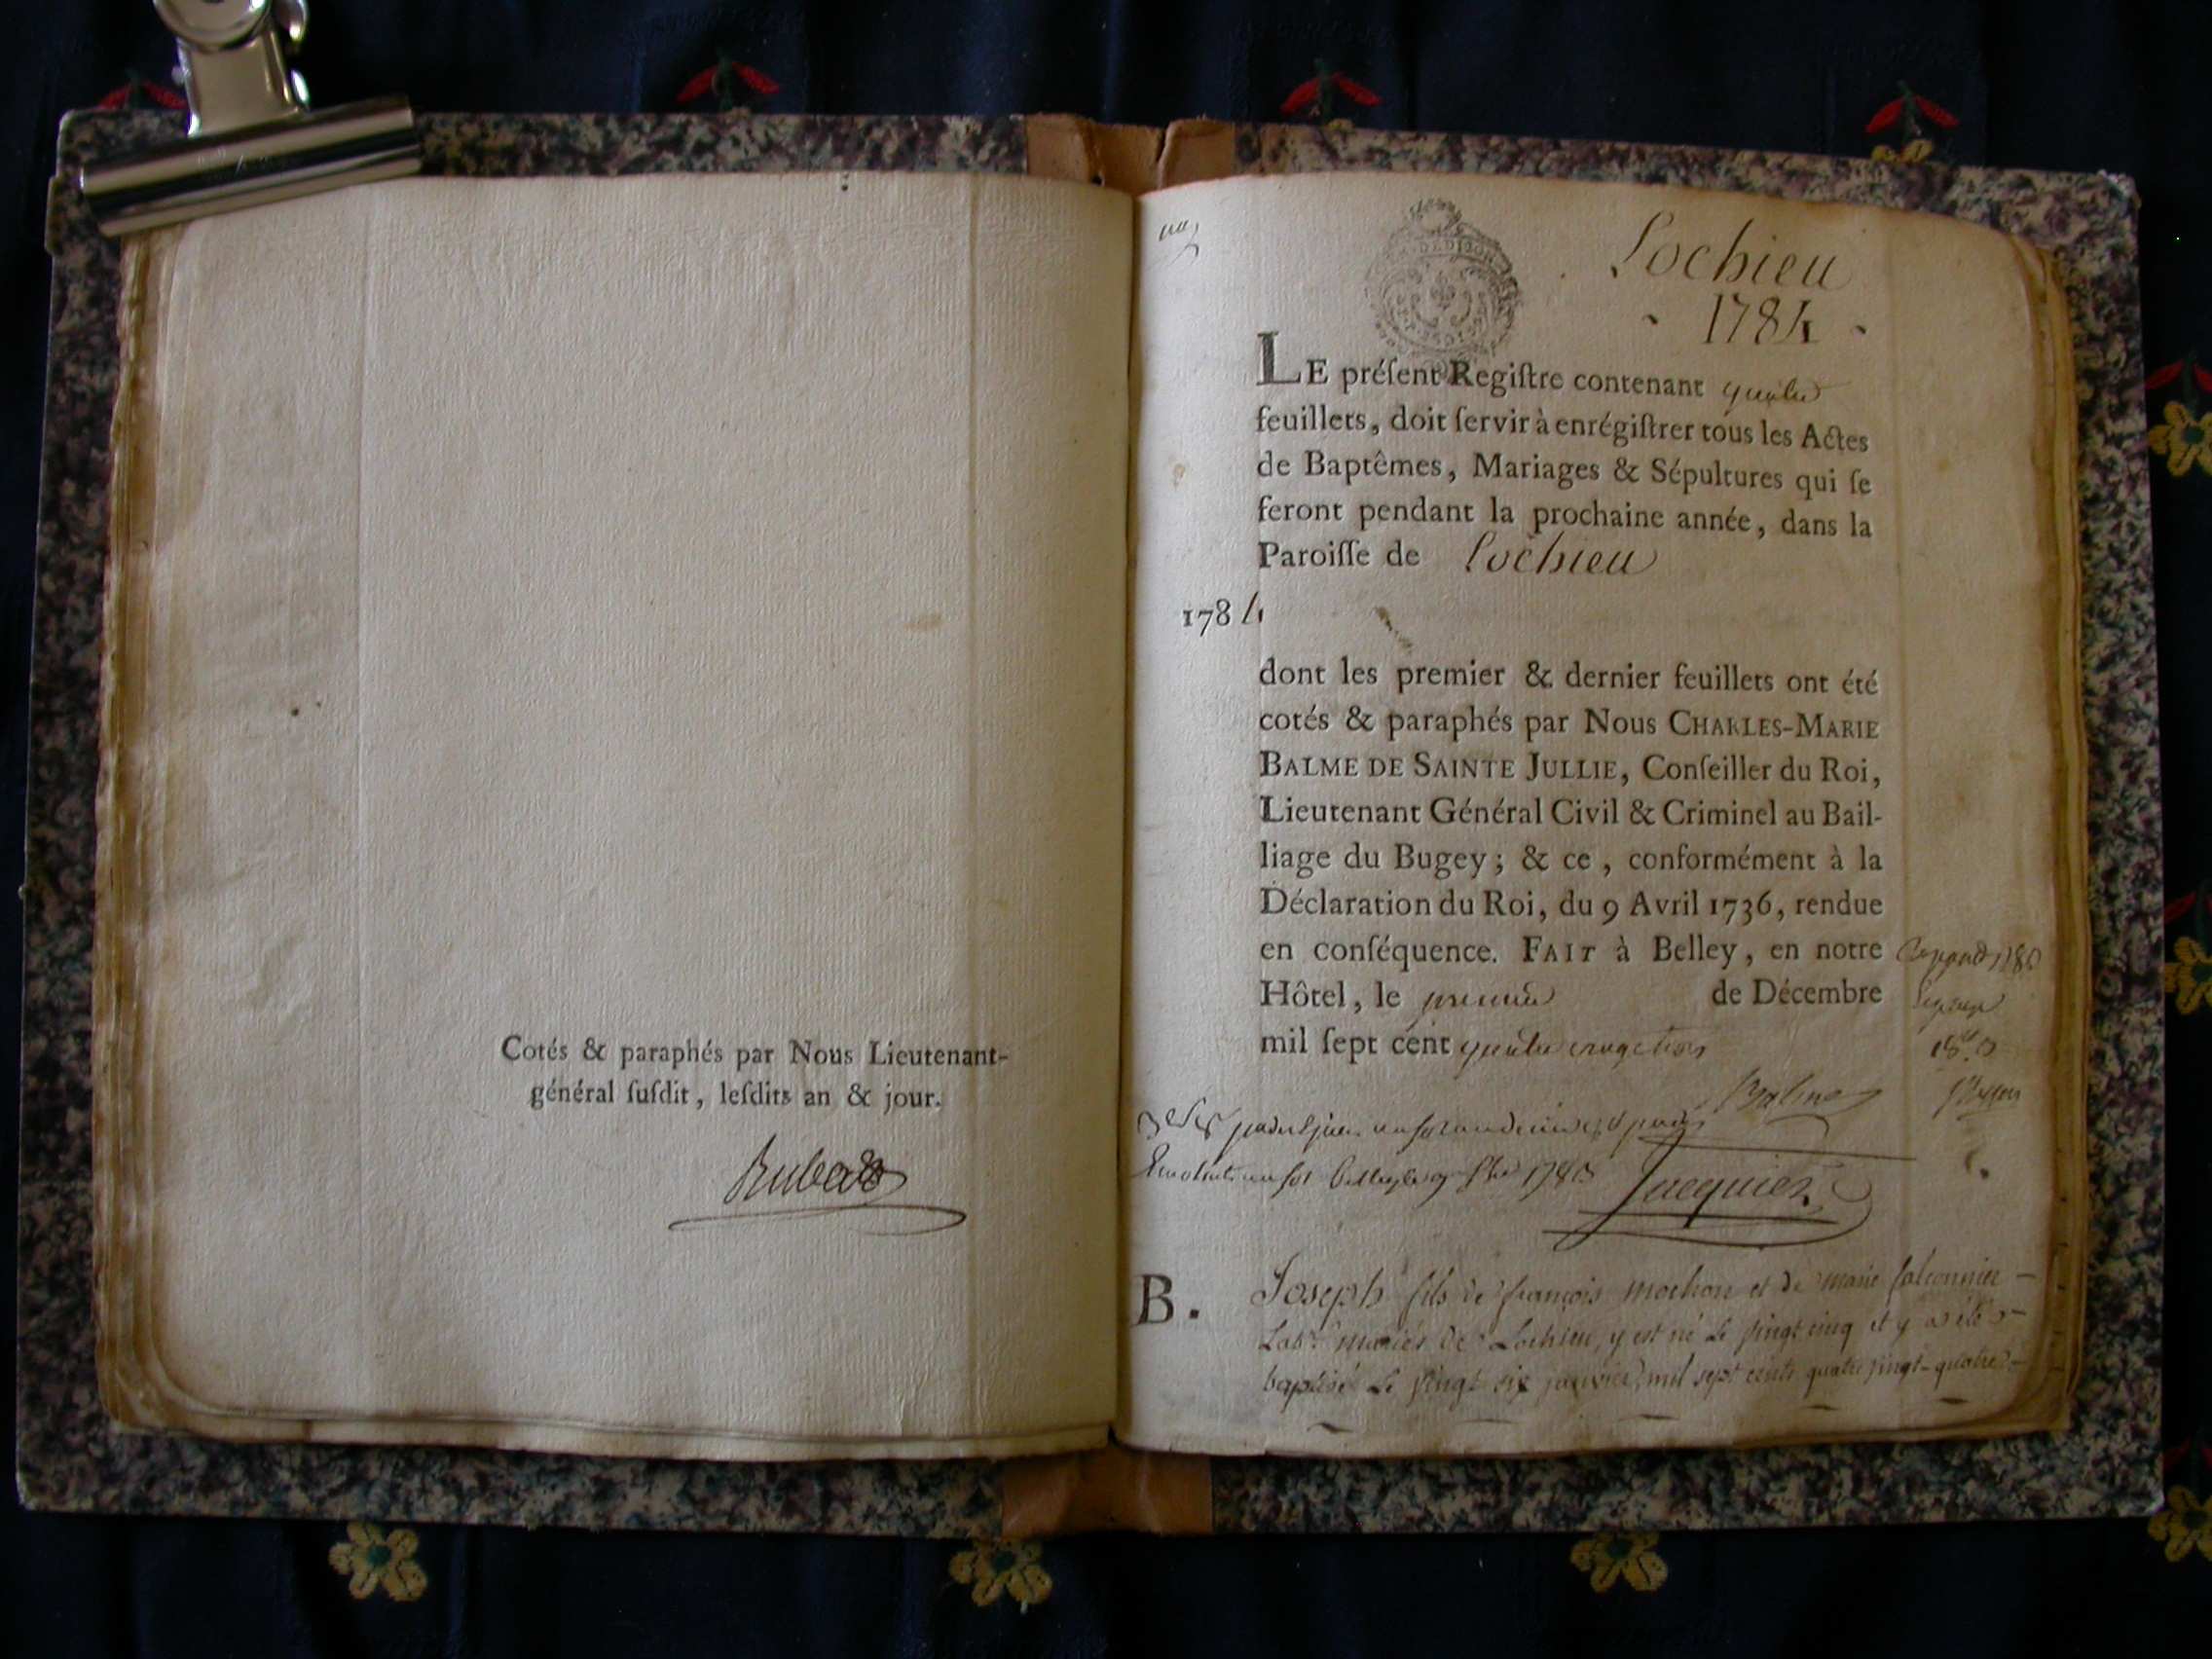 Cotés & paraphés par Nous Lieutenant-
général ſuſdit, leſdits an & jour.
Lochieu
1784
LE préſent Regiſtre contenant quatre
feuillets, doit ſervir à enrégiſtrer tous les Actes
de Baptêmes, Mariages & Sépultures qui ſe
feront pendant la prochaine année, dans la
Paroiſſe de Lochieu
1784
dont les premier & dernier feuillets ont été
cotés & paraphés par Nous CHARLES-MARIE
BALME DE SAINTE JULLIE, Conſeiller du Roi,
Lieutenant Général Civil & Criminel au Bail-
liage du Bugey; & ce, conformément à la
Déclaration du Roi, du 9 Avril 1736, rendue
en conſéquence. FAIT à Belley, en notre
Hôtel, le premier de Décembre
mil ſept cent quatre vingt trois
Balme
1783 Jacquier
B. Joseph fils de françois mochon et de marie falconnier
Labr. mariés de Lochieu, y est né le vingt cinq et y a été
baptisé le vingt six janvier mil sept cents quatre vingt-quatre